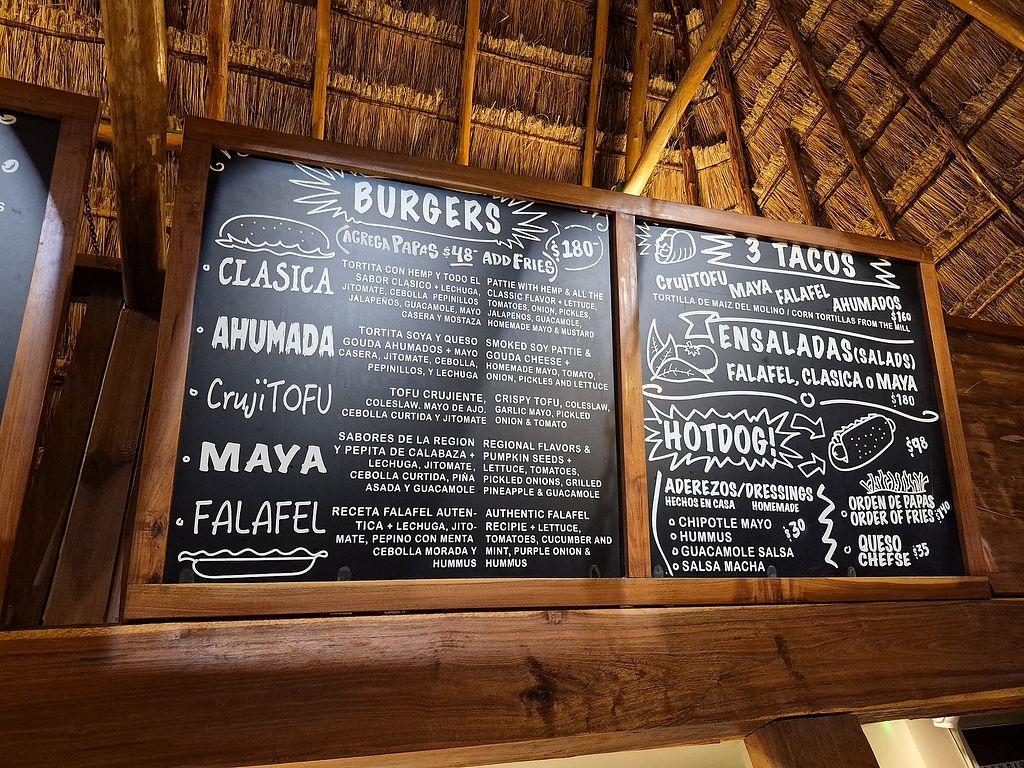 BURGERS
AGREGA PAPAS $48- ADD FRIES
$180-
CLASICA
TORTITA CON HEMP Y TODO EL
SABOR CLASICO + LECHUGA,
JITOMATE, CEBOLLA PEPINILLOS
JALAPEÑOS, GUACAMOLE, MAYO
CASERA Y MOSTAZA
PATTIE WITH HEMP & ALL THE
CLASSIC FLAVOR + LETTUCE,
TOMATOES, ONION, PICKLES,
JALAPEÑOS, GUACAMOLE,
HOMEMADE MAYO & MUSTARD
AHUMADA
TORTITA SOYA Y QUESO
GOUDA AHUMADOS + MAYO
CASERA, JITOMATE, CEBOLLA,
PEPINILLOS, Y LECHUGA
SMOKED SOY PATTIE &
GOUDA CHEESE +
HOMEMADE MAYO, TOMATO,
ONION, PICKLES AND LETTUCE
CrujiTOFU
TOFU CRUJIENTE,
COLESLAW, MAYO DE AJO.
CEBOLLA CURTIDA Y JITOMATE
CRISPY TOFU, COLESLAW,
GARLIC MAYO, PICKLED
ONION & TOMATO
MAYA
SABORES DE LA REGION
Y PEPITA DE CALABAZA +
LECHUGA, JITOMATE,
CEBOLLA CURTIDA, PIÑA
ASADA Y GUACAMOLE
REGIONAL FLAVORS &
PUMPKIN SEEDS +
LETTUCE, TOMATOES,
PICKLED ONIONS, GRILLED
PINEAPPLE & GUACAMOLE
FALAFEL
RECETA FALAFEL AUTEN-
TICA + LECHUGA, JITO-
MATE, PEPINO CON MENTA
CEBOLLA MORADA Y
HUMMUS
AUTHENTIC FALAFEL
RECIPIE + LETTUCE,
TOMATOES, CUCUMBER AND
MINT, PURPLE ONION &
HUMMUS
3 TACOS
CrujiTOFU MAYA FALAFEL AHUMADOS
$160
TORTILLA DE MAIZ DEL MOLINO / CORN TORTILLAS FROM THE MILL
ENSALADAS (SALADS)
FALAFEL, CLASICA o MAYA
$180
HOTDOG!
$98
ADEREZOS/DRESSINGS
HECHOS EN CASA HOMEMADE
CHIPOTLE MAYO
HUMMUS
GUACAMOLE SALSA
SALSA MACHA
$30
ORDEN DE PAPAS
ORDER OF FRIES
QUESO
CHEESE
$35